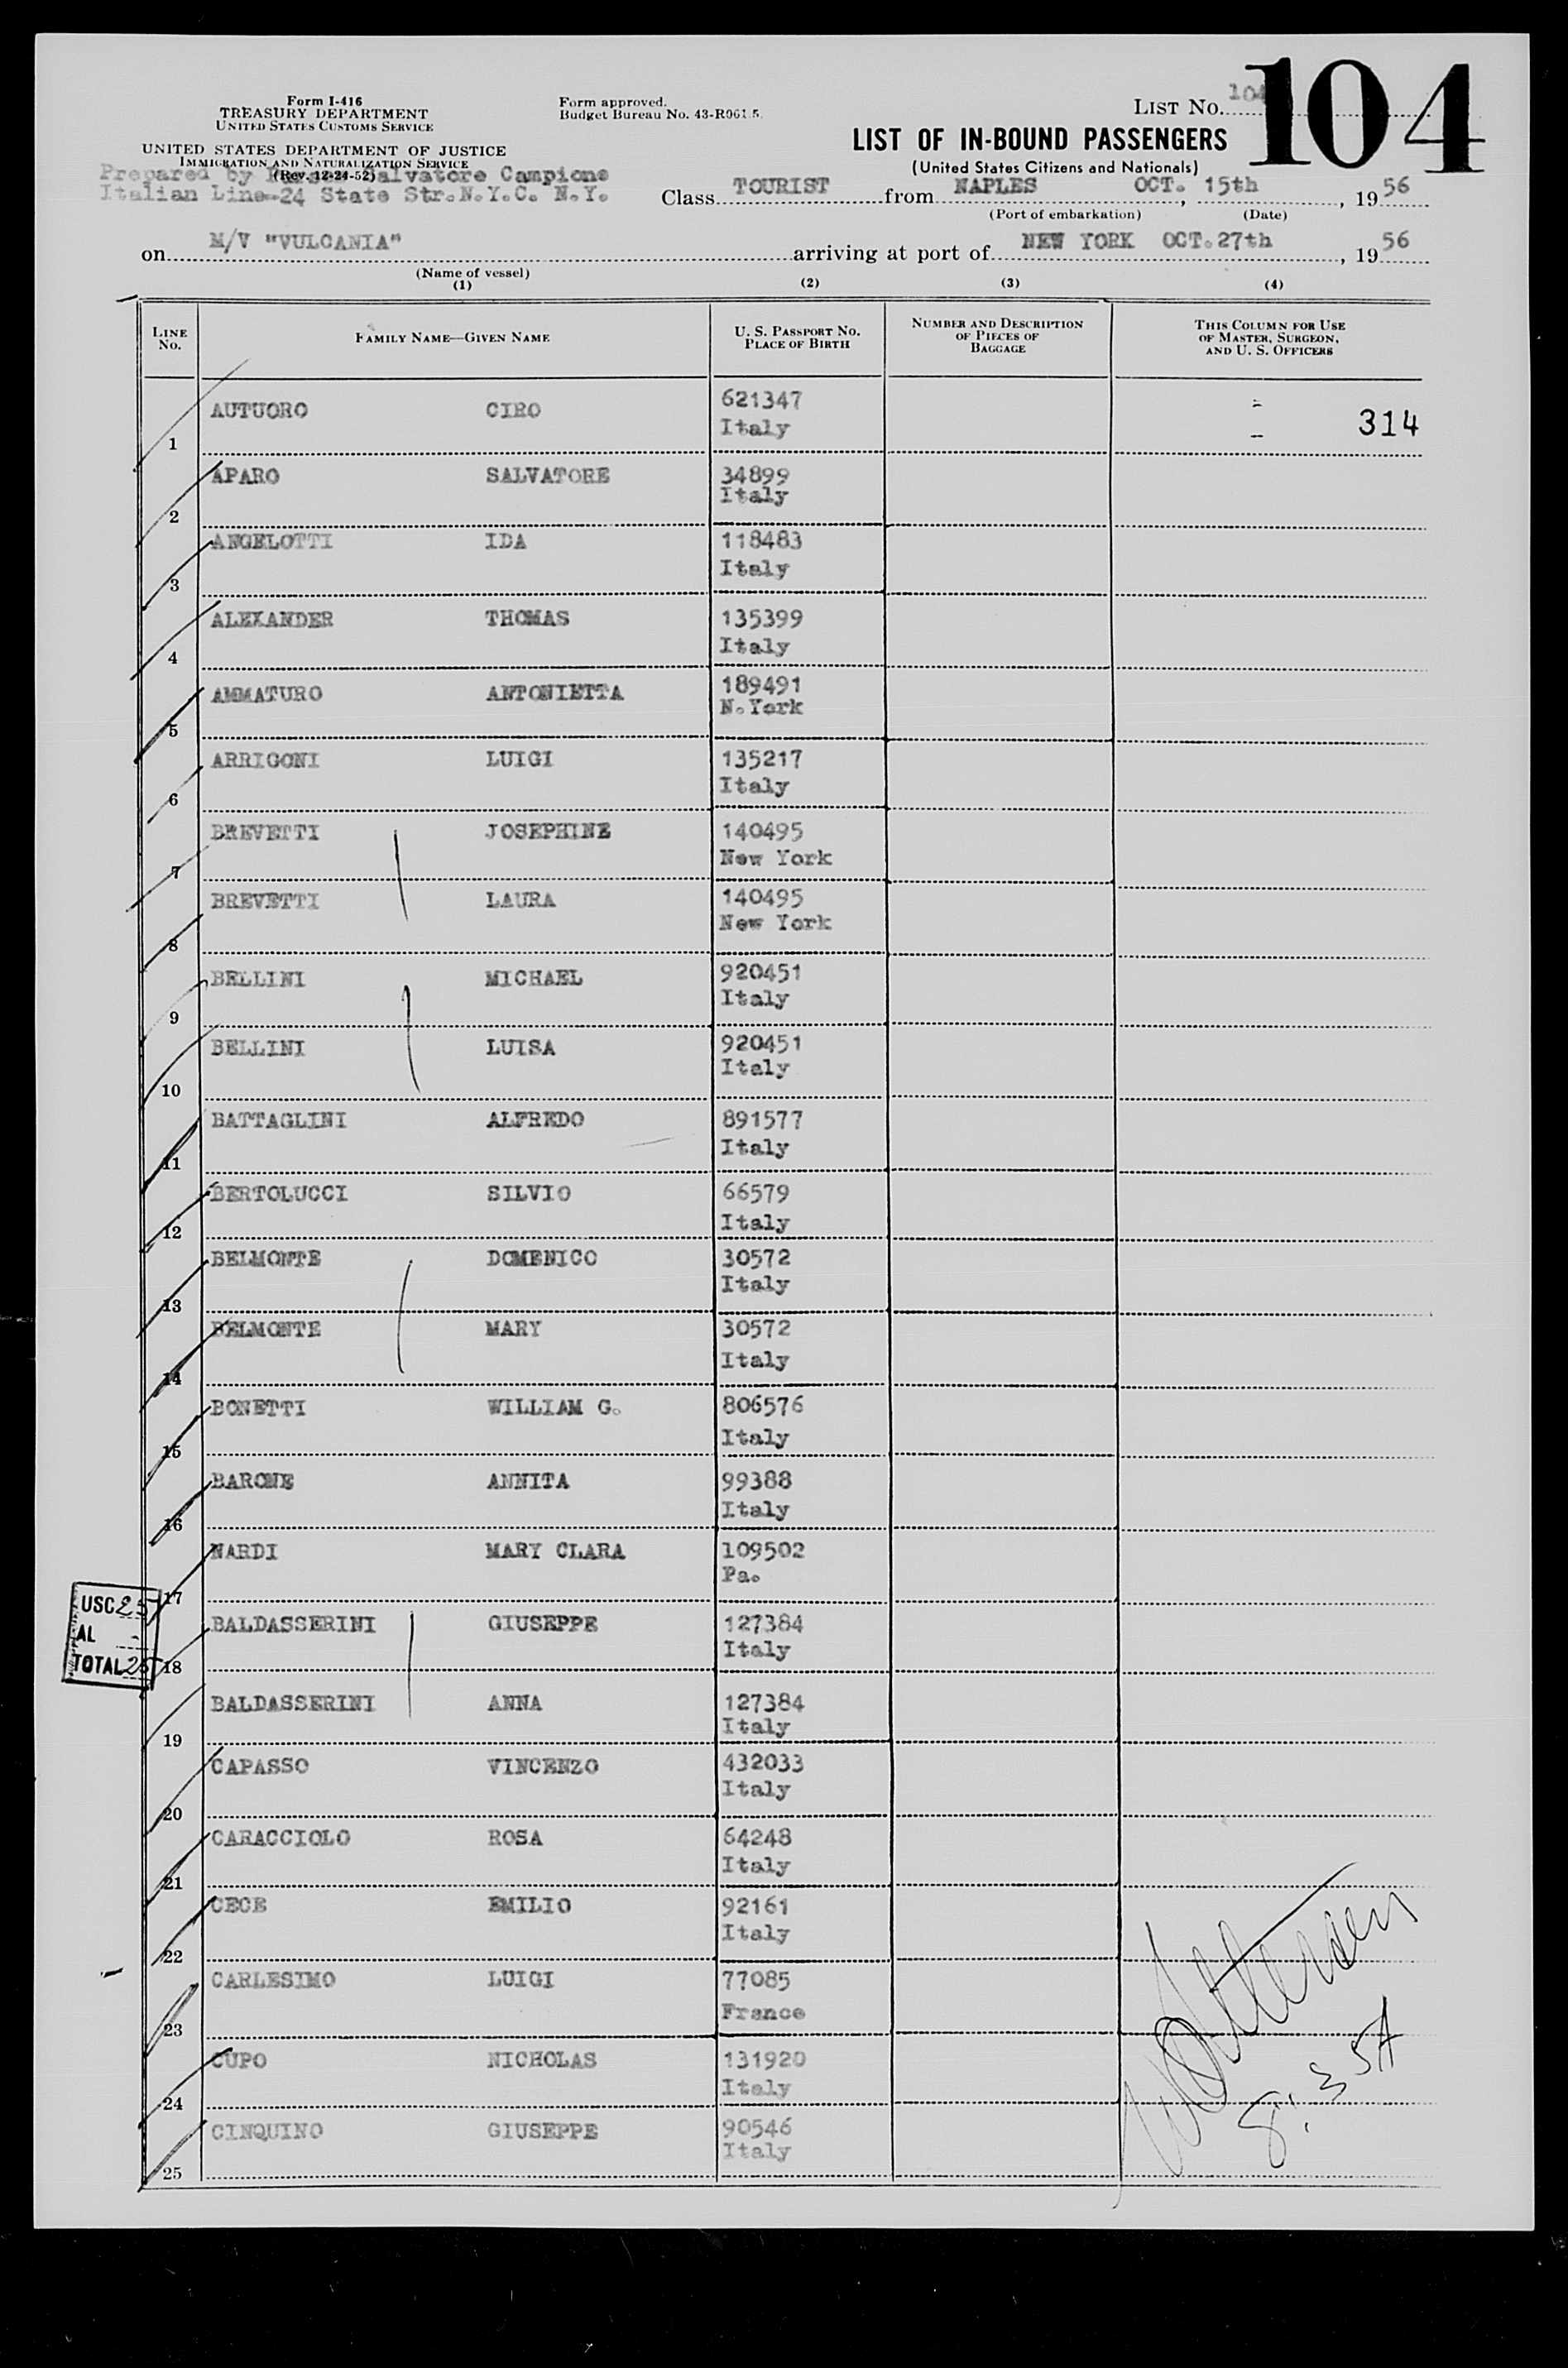 104
Form I-416
TREASURY DEPARTMENT
UNITED STATES CUSTOMS SERVICE
UNITED STATES DEPARTMENT OF JUSTICE
IMMIGRATION AND NATURALIZATION SERVICE
(Rev. 12-24-52)
Prepared by Salvatore Campione
Italian Line-24 State Str.N.Y.C. N.Y.
Form approved.
Budget Bureau No. 43-R061.5.
LIST NO. 104
LIST OF IN-BOUND PASSENGERS
(United States Citizens and Nationals)
Class TOURIST from NAPLES OCT. 15th, 1956
(Port of embarkation) (Date)
on M/V "VULCANIA" arriving at port of NEW YORK OCT.27th, 1956
(Name of vessel)
(1) (2) (3) (4)
LINE NO. FAMILY NAME—GIVEN NAME U. S. PASSPORT NO. PLACE OF BIRTH NUMBER AND DESCRIPTION OF PIECES OF BAGGAGE THIS COLUMN FOR USE OF MASTER, SURGEON, AND U. S. OFFICERS
1 AUTUORO CIRO 621347 Italy 314
2 APARO SALVATORE 34899 Italy
3 ANGELOTTI IDA 118483 Italy
4 ALEXANDER THOMAS 135399 Italy
5 AMMATURO ANTONIETTA 189491 N.York
6 ARRIGONI LUIGI 135217 Italy
7 BREVETTI JOSEPHINE 140495 New York
8 BREVETTI LAURA 140495 New York
9 BELLINI MICHAEL 920451 Italy
10 BELLINI LUISA 920451 Italy
11 BATTAGLINI ALFREDO 891577 Italy
12 BERTOLUCCI SILVIO 66579 Italy
13 BELMONTE DOMENICO 30572 Italy
14 BELMONTE MARY 30572 Italy
15 BONETTI WILLIAM G. 806576 Italy
16 BARONE ANNITA 99388 Italy
17 NARDI MARY CLARA 109502 Pa.
18 BALDASSERINI GIUSEPPE 127384 Italy
19 BALDASSERINI ANNA 127384 Italy
20 CAPASSO VINCENZO 432033 Italy
21 CARACCIOLO ROSA 64248 Italy
22 CECE EMILIO 92161 Italy
23 CARLESIMO LUIGI 77085 France
24 CUPO NICHOLAS 131920 Italy
25 CINQUINO GIUSEPPE 90546 Italy
USC 25
AL -
TOTAL 25